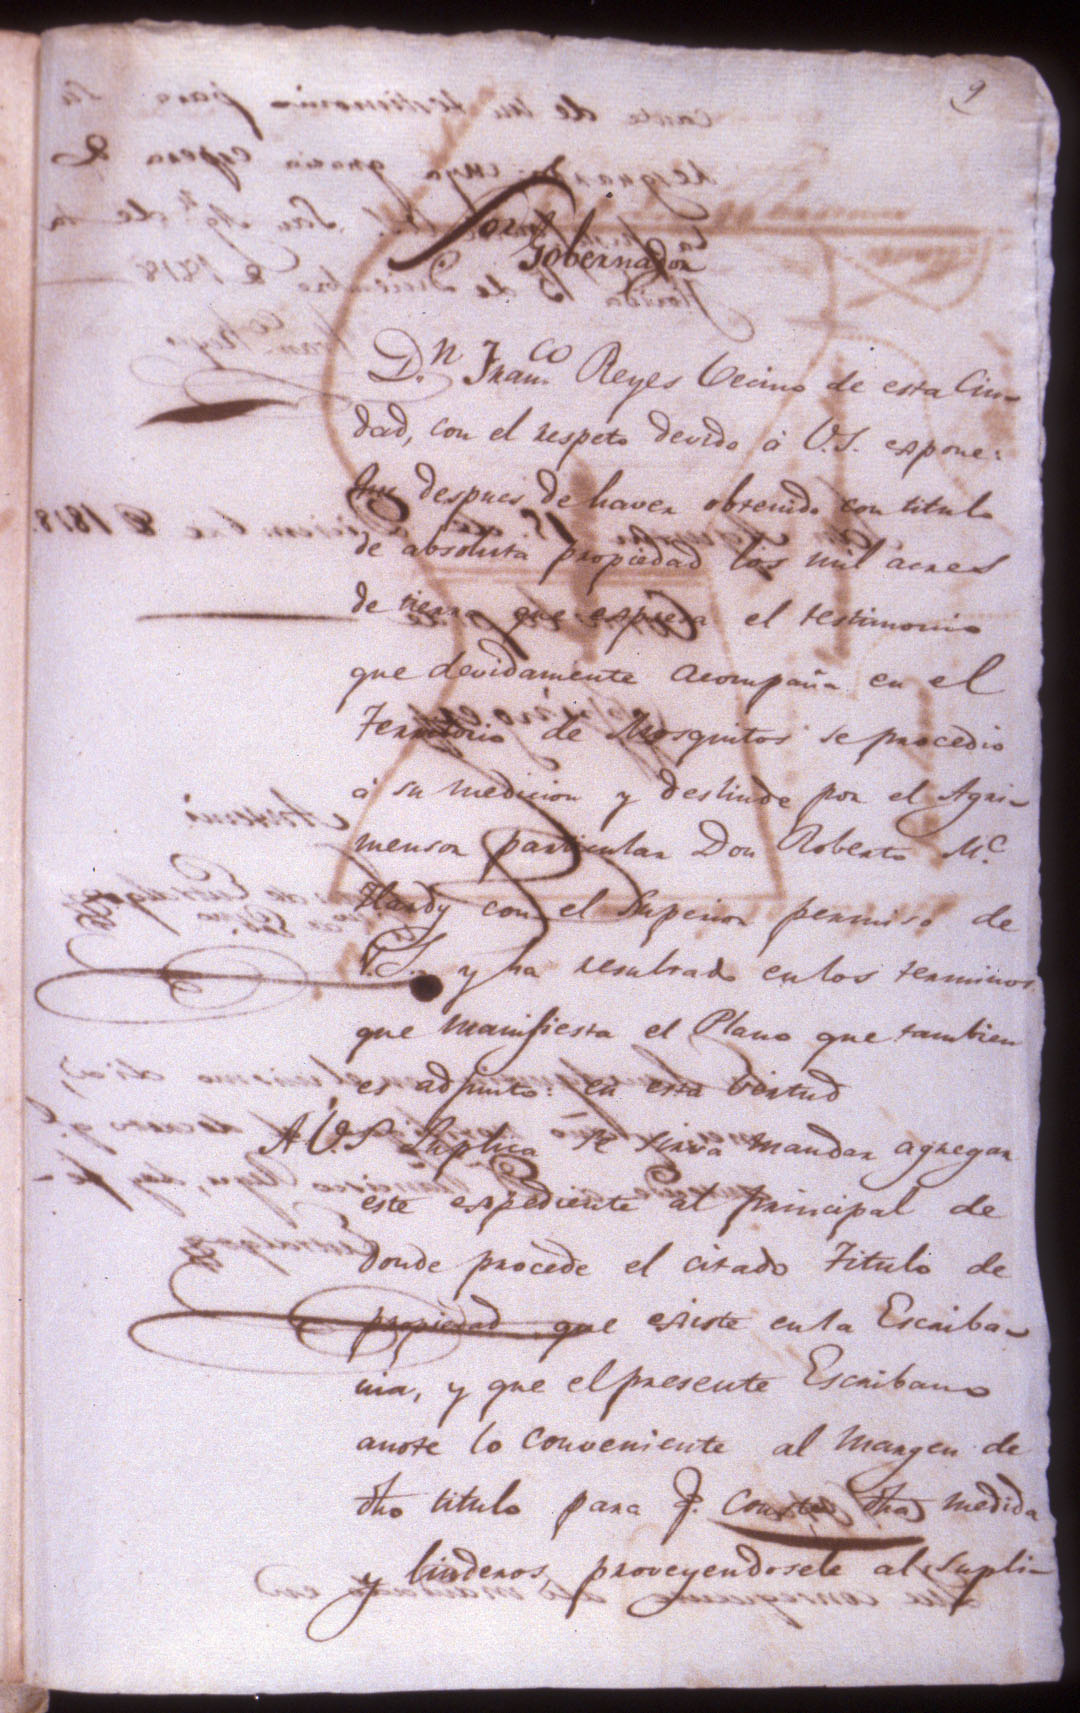 9
Sor.
Gobernador
Dn. Franco. Reyes Vecino de esta Ciu-
dad, con el respeto devido á V.S. expone:
Que despues de haver obtenido con titulo
de absoluta propiedad los mil acres
de tierra que expresa el testimonio
que devidamente acompaña en el
Territorio de Mosquitos se procedio
á su medicion y deslinde por el Agri-
mensor particular Don Roberto Mc.
Hardy con el Superior permiso de
V.S. y ha resultado en los terminos
que manifiesta el Plano que tambien
es adjunto: en esta virtud
A V.S. Suplica se sirva mandar agregar
este expediente al principal de
donde procede el citado Titulo de
propiedad que existe en la Escriba-
nia, y que el presente Escribano
anote lo conveniente al margen de
dho titulo para q. conste dha medida
y linderos, proveyendosele al Supli-